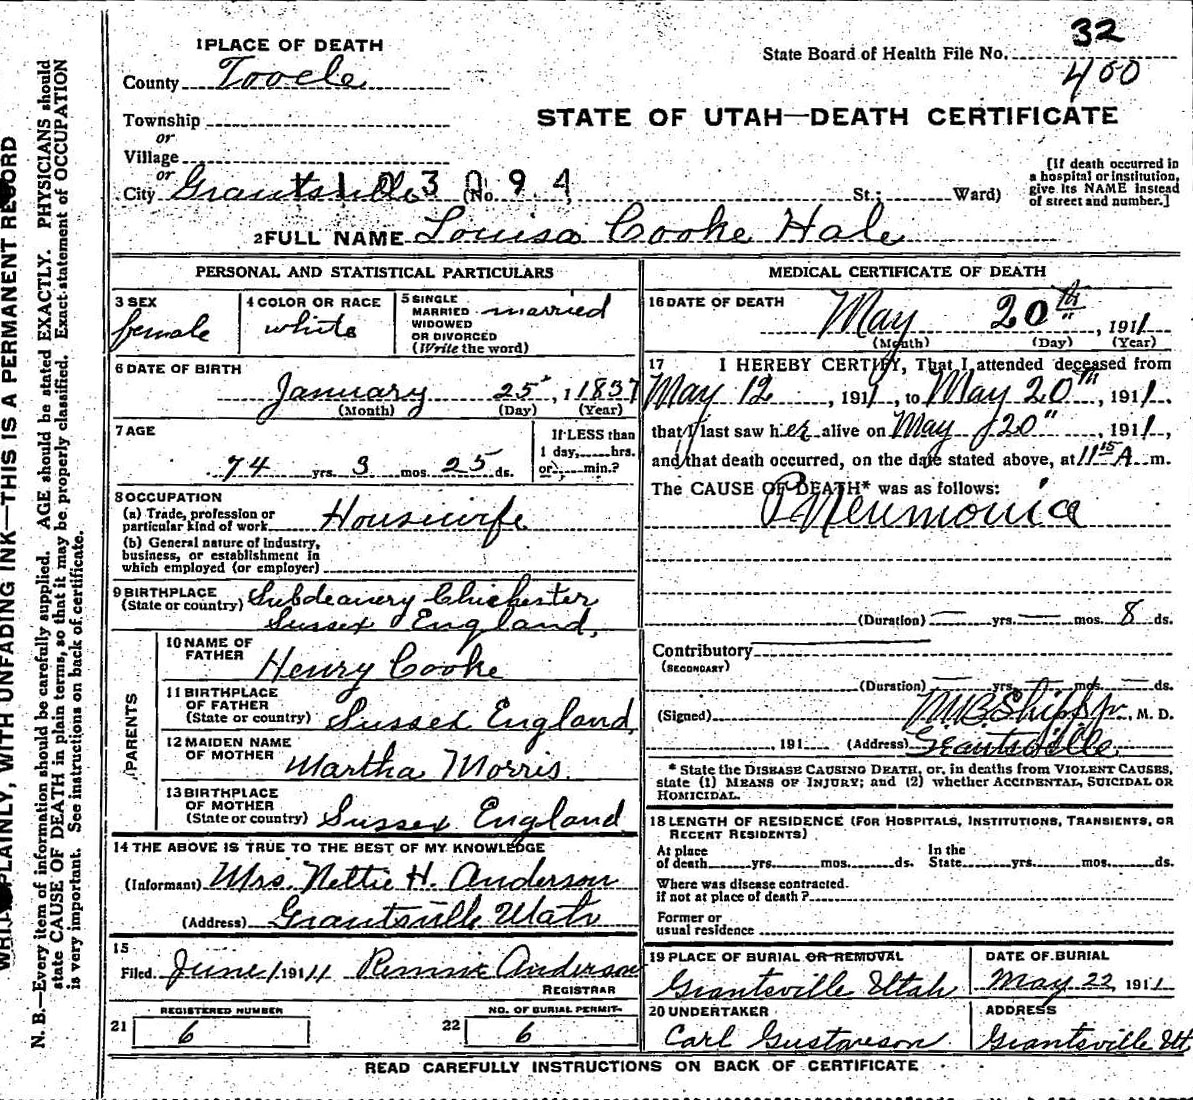 WRITE PLAINLY, WITH UNFADING INK—THIS IS A PERMANENT RECORD
N. B.—Every item of information should be carefully supplied. AGE should be stated EXACTLY. PHYSICIANS should
state CAUSE OF DEATH in plain terms, so that it may be properly classified. Exact statement of OCCUPATION
is very important. See instructions on back of certificate.
1 PLACE OF DEATH
County Tooele
Township
or
Village
or
City Grantsville (No. St.; Ward)
State Board of Health File No. 32
400
STATE OF UTAH—DEATH CERTIFICATE
[If death occurred in
a hospital or institution,
give its NAME instead
of street and number.]
2 FULL NAME Louisa Cooke Hale
PERSONAL AND STATISTICAL PARTICULARS
3 SEX
female
4 COLOR OR RACE
white
5 SINGLE
MARRIED married
WIDOWED
OR DIVORCED
(Write the word)
6 DATE OF BIRTH
January 25, 1837
(Month) (Day) (Year)
7 AGE
74 yrs. 3 mos. 25 ds.
If LESS than
1 day,......hrs.
or......min.?
8 OCCUPATION
(a) Trade, profession or
particular kind of work Housewife
(b) General nature of industry,
business, or establishment in
which employed (or employer)
9 BIRTHPLACE
(State or country) Subdeanery Chichester
Sussex England,
PARENTS
10 NAME OF
FATHER Henry Cooke
11 BIRTHPLACE
OF FATHER
(State or country) Sussex England,
12 MAIDEN NAME
OF MOTHER Martha Morris
13 BIRTHPLACE
OF MOTHER
(State or country) Sussex England
14 THE ABOVE IS TRUE TO THE BEST OF MY KNOWLEDGE
(Informant) Mrs. Nettie H. Anderson
(Address) Grantsville Utah
15
Filed June 1 1911 Anderson
REGISTRAR
21 REGISTERED NUMBER
6
22 NO. OF BURIAL PERMIT
6
MEDICAL CERTIFICATE OF DEATH
16 DATE OF DEATH
May 20th, 1911
(Month) (Day) (Year)
17 I HEREBY CERTIFY, That I attended deceased from
May 12, 1911, to May 20th, 1911,
that I last saw her alive on May 20", 1911,
and that death occurred, on the date stated above, at 11 15 A m.
The CAUSE OF DEATH* was as follows:
PNeumonia
(Duration) — yrs. — mos. 8 ds.
Contributory
(SECONDARY)
(Duration) — yrs. — mos. — ds.
(Signed) Shipp Jr, M. D.
191 (Address) Grantsville.
* State the DISEASE CAUSING DEATH, or, in deaths from VIOLENT CAUSES,
state (1) MEANS OF INJURY; and (2) whether ACCIDENTAL, SUICIDAL OR
HOMICIDAL.
18 LENGTH OF RESIDENCE (FOR HOSPITALS, INSTITUTIONS, TRANSIENTS, OR
RECENT RESIDENTS)
At place
of death yrs. mos. ds.
In the
State yrs. mos. ds.
Where was disease contracted.
if not at place of death?
Former or
usual residence
19 PLACE OF BURIAL OR REMOVAL
Grantsville Utah
DATE OF BURIAL
May 22, 1911
20 UNDERTAKER
Carl Gustaveson
ADDRESS
Grantsville Ut
READ CAREFULLY INSTRUCTIONS ON BACK OF CERTIFICATE